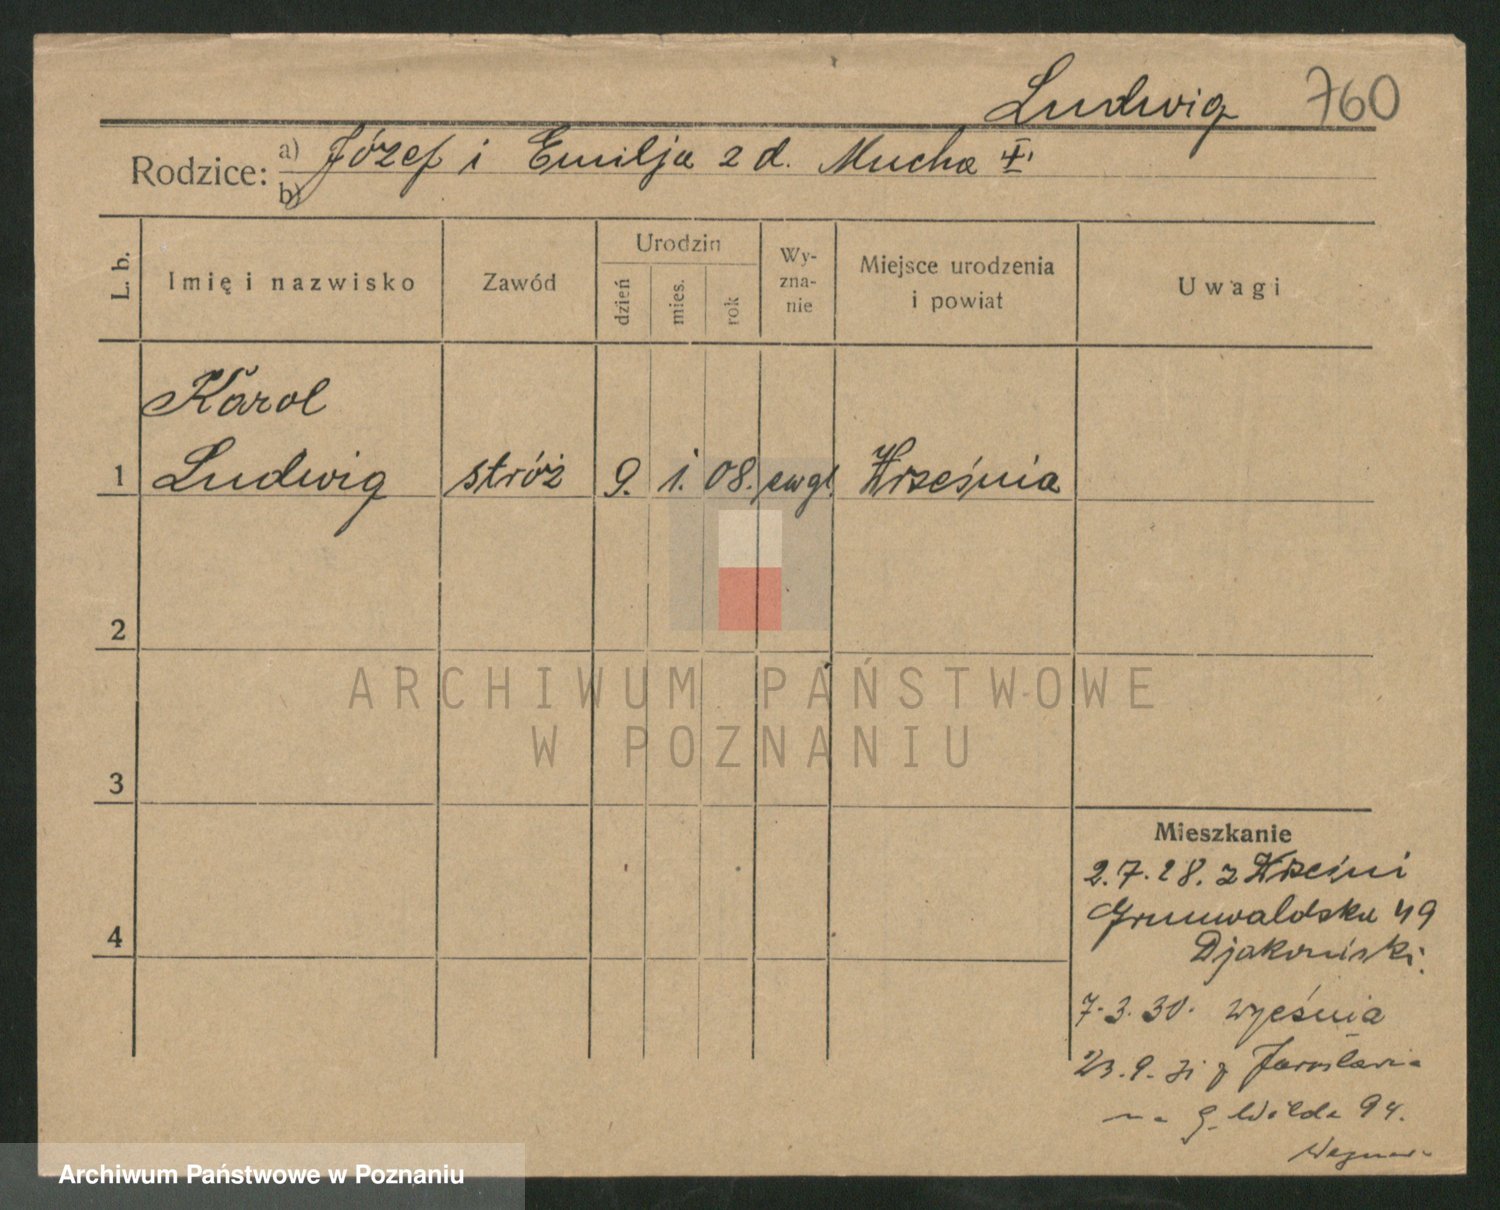 Ludwig 760
Rodzice: a) Józef i Emilja z d. Mucha
b)
L. b. Imię i nazwisko Zawód Urodzin dzień mies. rok Wy-zna-nie Miejsce urodzenia i powiat Uwagi
Karol
1 Ludwig stróż 9. 1. 08. ewgl. Września
2
ARCHIWUM PAŃSTWOWE
W POZNANIU
3
Mieszkanie
2.7.28. z Wrześni
Grunwaldska 49
4
Djakoniski.
7.3.30.
23.9. Jarosławia
na G. Wilda 94.
Archiwum Państwowe w Poznaniu